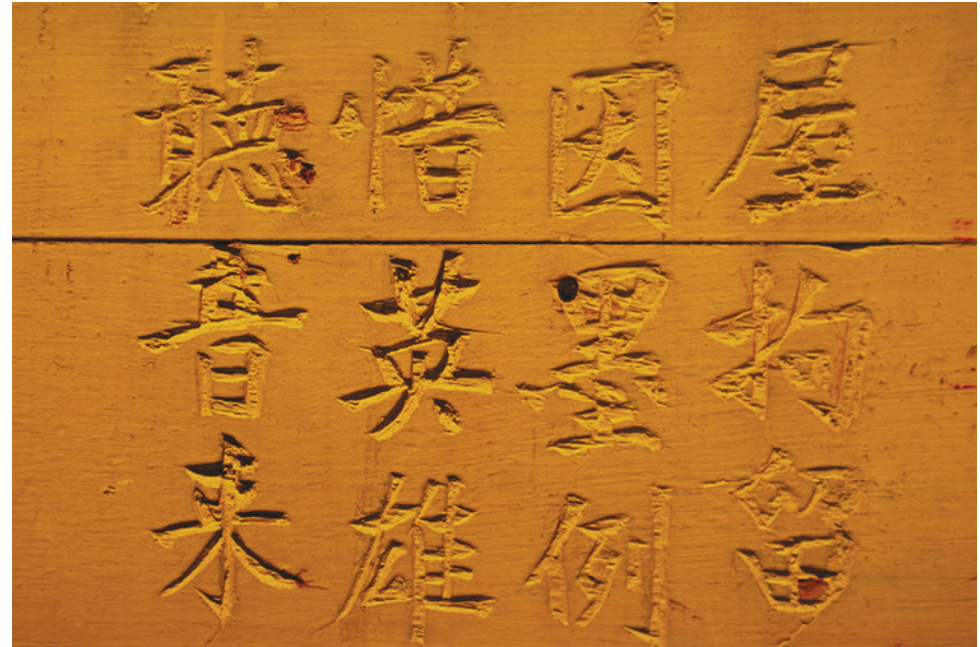 屋拘留
因墨例
惜英雄
聽音来